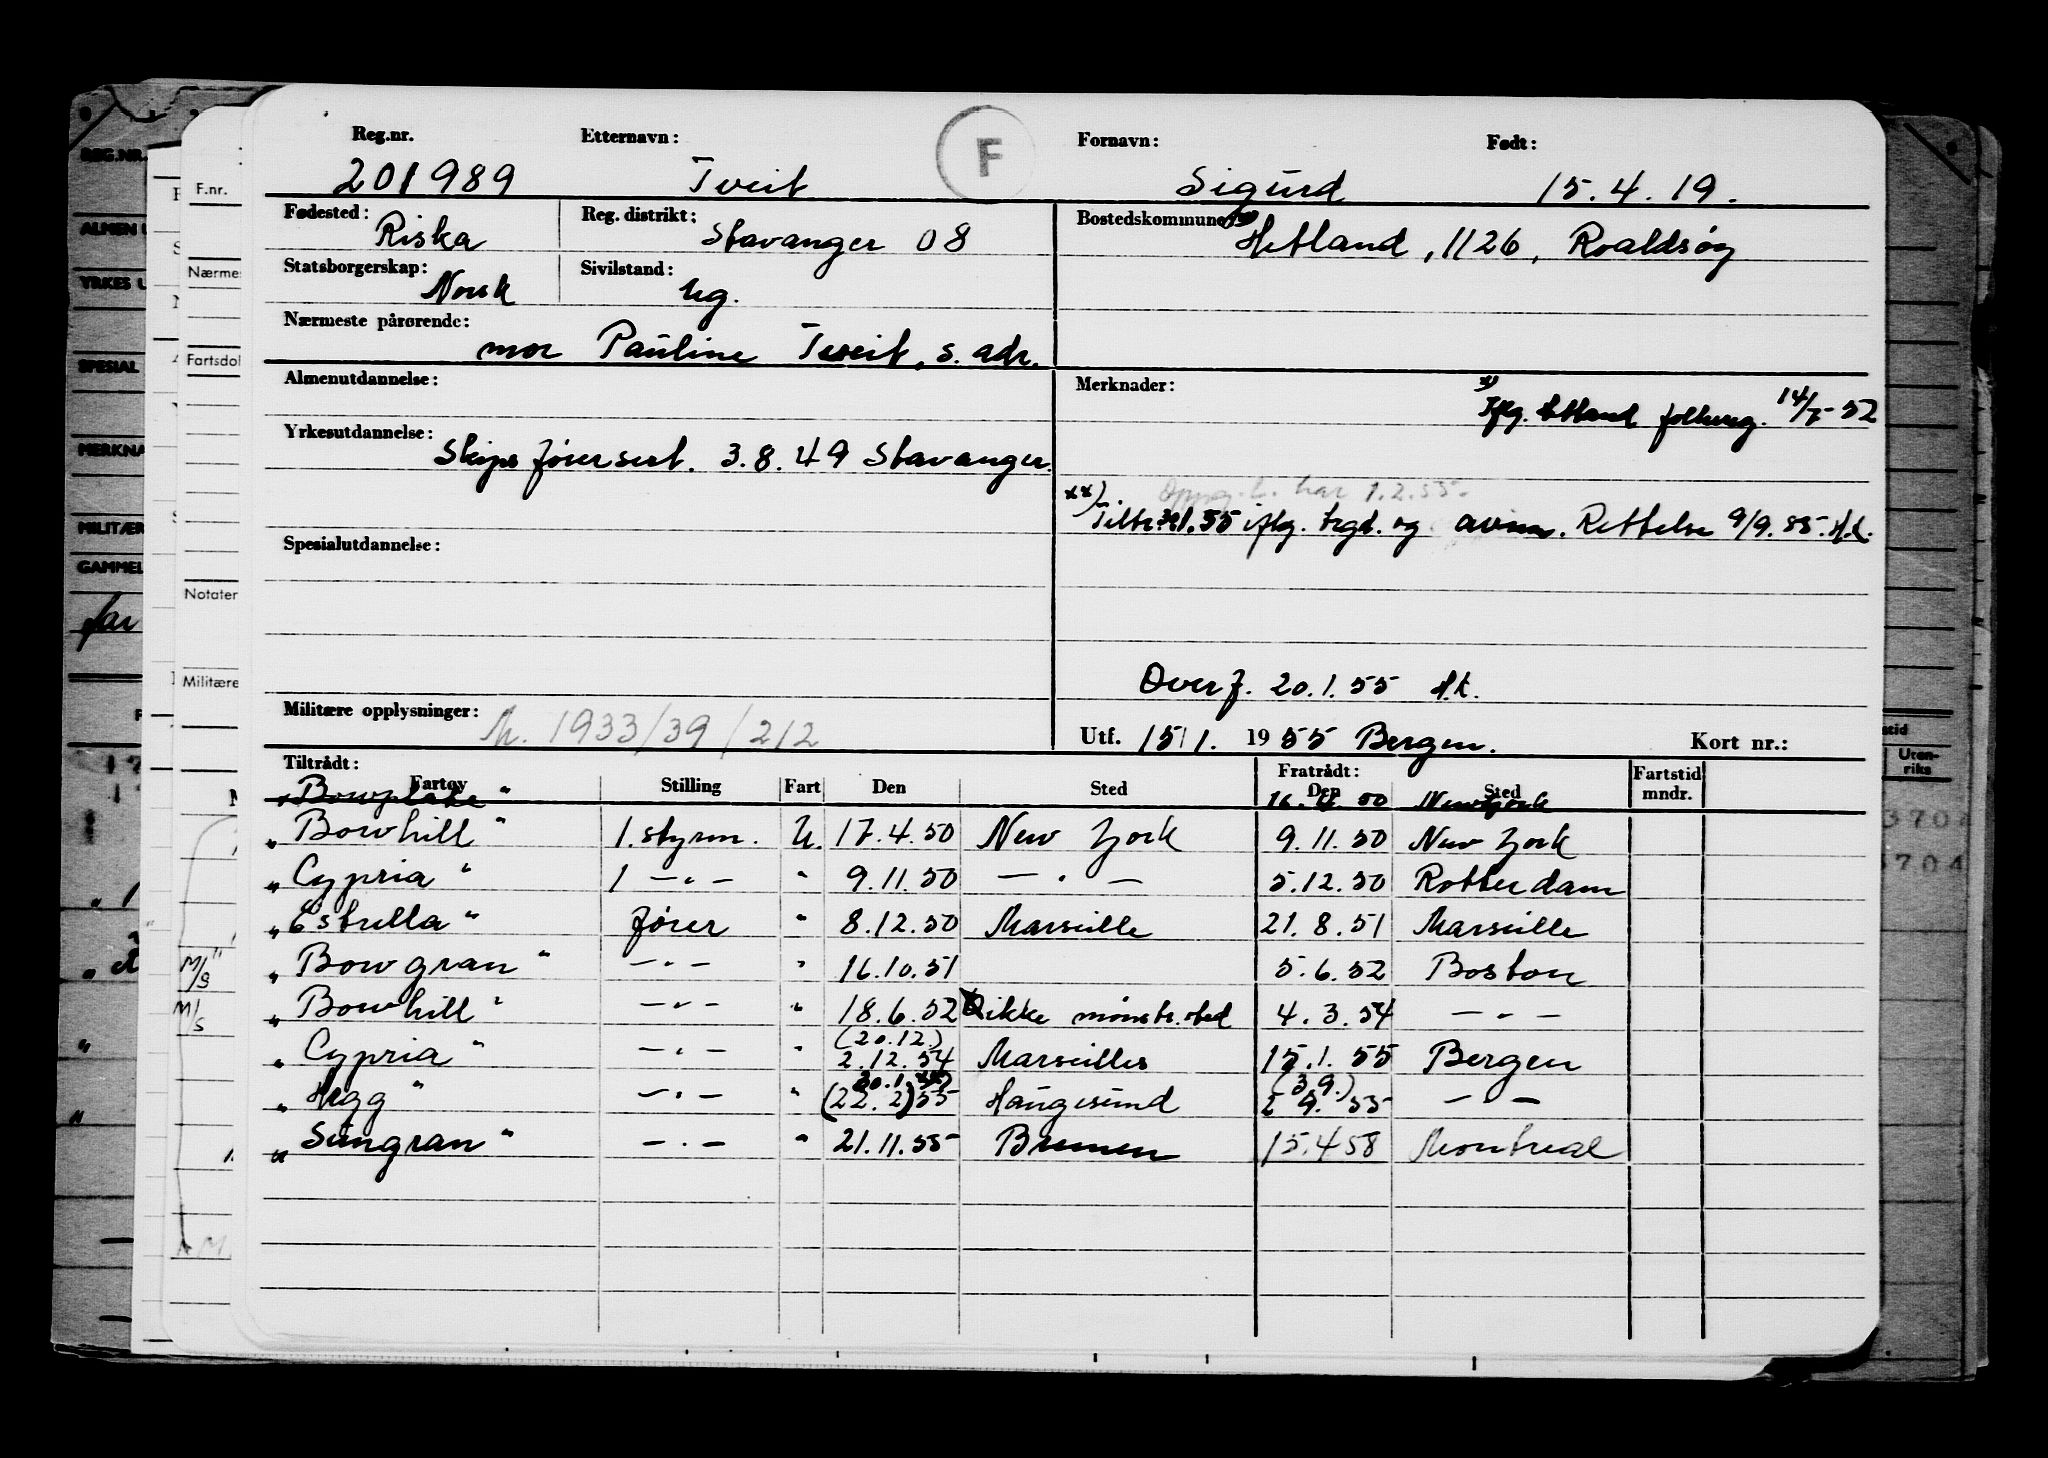 Reg.nr. Etternavn: F Fornavn: Født:
201989 Tveit Sigurd 15.4.19.
Fødested: Riska Reg. distrikt: Stavanger 08 Bostedskommune: x) Hetland, 1126, Roaldsøy
Statsborgerskap: Norsk Sivilstand: Ug.
Nærmeste pårørende:
mor Pauline Tveit, s. adr.
Almenutdannelse: Merknader: x) Iflg. Hetland folkereg. 14/7-52
Yrkesutdannelse:
Skipsførersert. 3.8.49 Stavanger.
Oppg. t. har 1.2.55.
xx) Tiltr. 30.1.55 iflg. trgd. og avm. Rettelse 9/9.55. H.t.
Spesialutdannelse:
Overf. 20.1.55 H.t.
Militære opplysninger: M. 1933/39/212
Utf. 15/1. 1955 Bergen. Kort nr.:
Tiltrådt: Fratrådt: Fartstid
Fartøy Stilling Fart Den Sted Den Sted mndr.
"Bowplate" 16.4.50 New York
"Bowhill" 1. styrm. U. 17.4.50 New York 9.11.50 New York
"Cypria" 1 —"— " 9.11.50 —"— 5.12.50 Rotterdam
"Estrella" fører " 8.12.50 Marseille 21.8.51 Marseille
"Bowgran" —"— " 16.10.51 5.6.52 Boston
"Bowhill" —"— " 18.6.52 ikke mønstr.sted 4.3.54 —"—
(20.12.)
"Cypria" —"— " 2.12.54 Marseilles 15.1.55 Bergen
30.1. xx) (3.9.)
"Hegg" —"— " (22.2) 55 Haugesund 2 9. 55 —"—
"Sungran" —"— " 21.11.55 Bremen 15.4 58 Montreal
REG.NR.
ALMEN U
YRKES U
SPESIAL
MERKNA
MILITÆR
GAMMEL
far
F.nr.
Nærmes
Fartsdol
Notater
Militære
M/S
M/S
stid
Uten-
riks
3704
3704